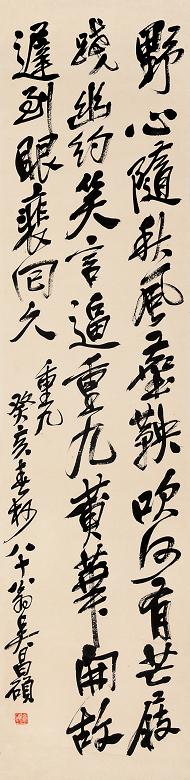 野心隨秋風塵鞅吹何有芒屐
踐幽約笑言逼重九黃華開故
遲到眼裴回久
重九
癸亥春杪八十翁吳昌碩